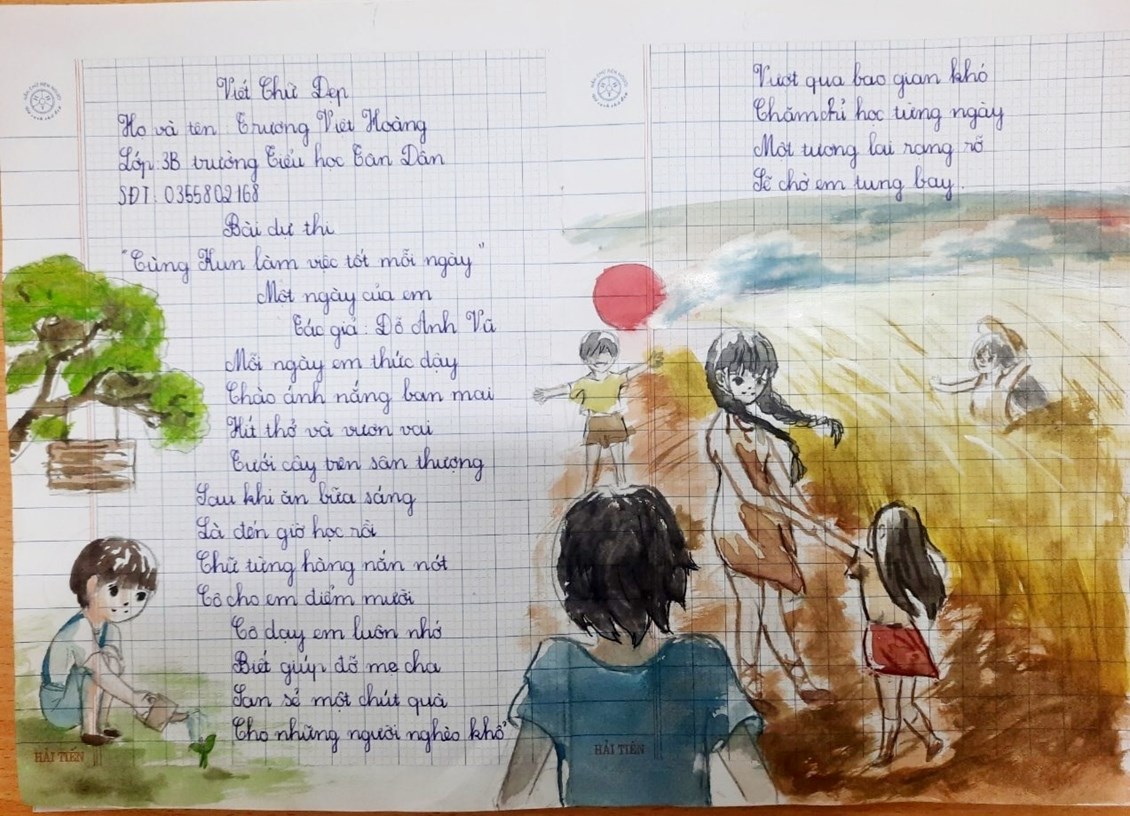 Viết Chữ Đẹp
Họ và tên: Trương Viết Hoàng
Lớp 3B trường Tiểu học Tân Dân
SĐT: 0355802168
Bài dự thi
"Cùng Hun làm việc tốt mỗi ngày"
Một ngày của em
Tác giả: Đỗ Anh Vũ
Mỗi ngày em thức dậy
Chào ánh nắng ban mai
Hít thở và vươn vai
Tưới cây trên sân thượng
Sau khi ăn bữa sáng
Là đến giờ học rồi
Chữ từng hàng nắn nót
Cô cho em điểm mười
Cô dạy em luôn nhớ
Biết giúp đỡ mẹ cha
San sẻ một chút quà
Cho những người nghèo khó"
HẢI TIẾN
Vượt qua bao gian khó
Chăm chỉ học từng ngày
Một tương lai rạng rỡ
Sẽ chờ em tung bay.
HẢI TIẾN